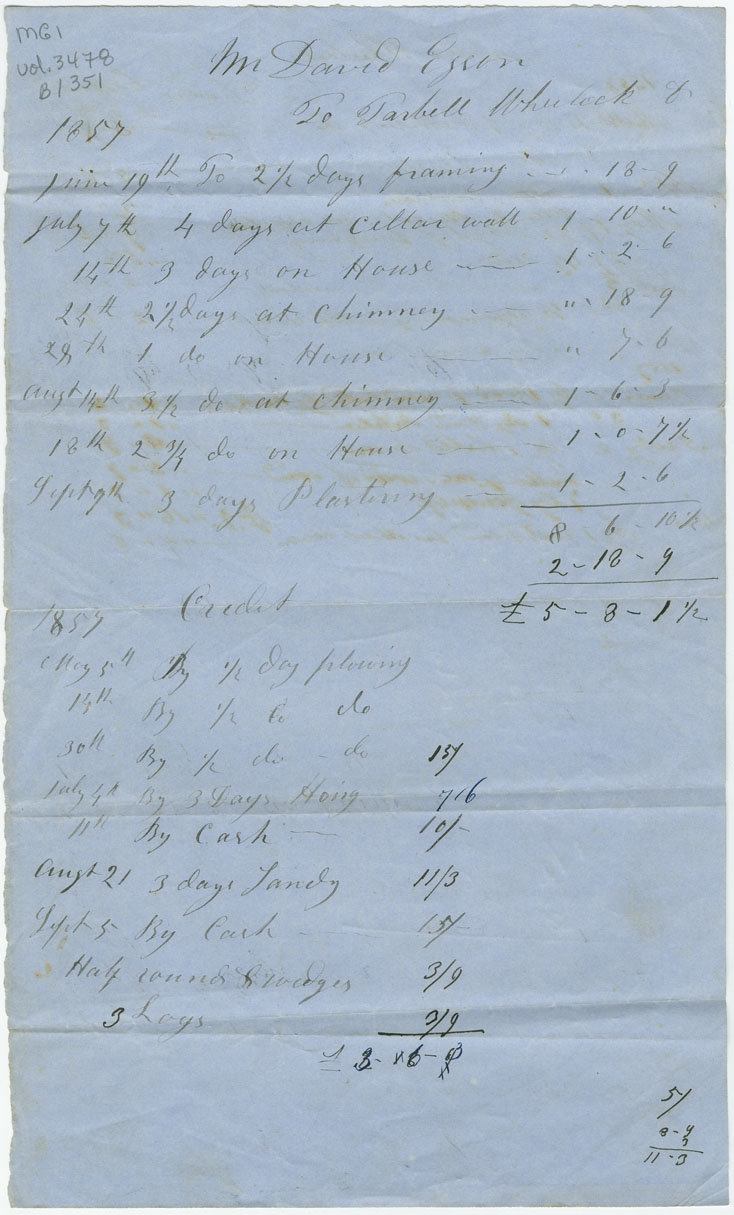 MG1
vol. 3478
B1351
Mr David Esson
To Tarbell Wheelock Dr
1857
June 19th To 2 1/2 days framing — " - 18 - 9
July 7th 4 days at Cellar wall 1 - 10 - "
14th 3 days on House — 1 - 2 - 6
24th 2 1/2 days at Chimney — " - 18 - 9
28th 1 do on House — " 7 - 6
Augt 14th 3 1/2 do at Chimney — 1 - 6 - 3
18th 2 3/4 do on House — 1 - 0 - 7 1/2
Sept 9th 3 days Plastering — 1 - 2 - 6
8 6 - 10 1/2
2 - 18 - 9
£ 5 - 8 - 1 1/2
1857 Credit
May 5th By 1/2 day plowing
14th By 1/2 do do
30th By 1/2 do - do 15/
July 4th By 3 Days Hoing 7/6
11th By Cash — 10/-
Augt 21 3 days Sandy 11/3
Sept 5 By Cash — 15/
Half round & wedges 3/9
3 Logs 3/9
£ 3 - 6 -
5/
8 - 9
11 - 3